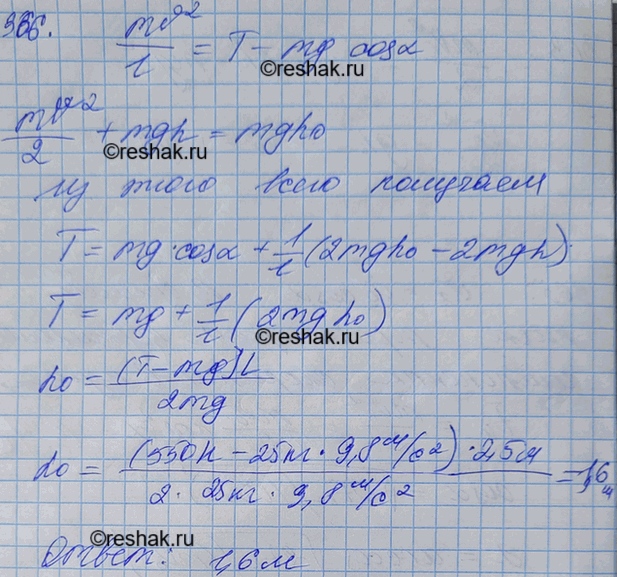 366. mv²/l = T - mg cosα
©reshak.ru
mv²/2 + mgh = mgh₀
©reshak.ru
из этого всего получаем
T = mg·cosα + 1/l (2mgh₀ - 2mgh)
T = mg + 1/l (2mgh₀)
©reshak.ru
h₀ = (T - mg)L / 2mg
h₀ = (550Н - 25кг · 9,8 м/с²) · 2,5м / 2 · 25кг · 9,8 м/с² = 1,6 м
©reshak.ru
Ответ: 1,6 м